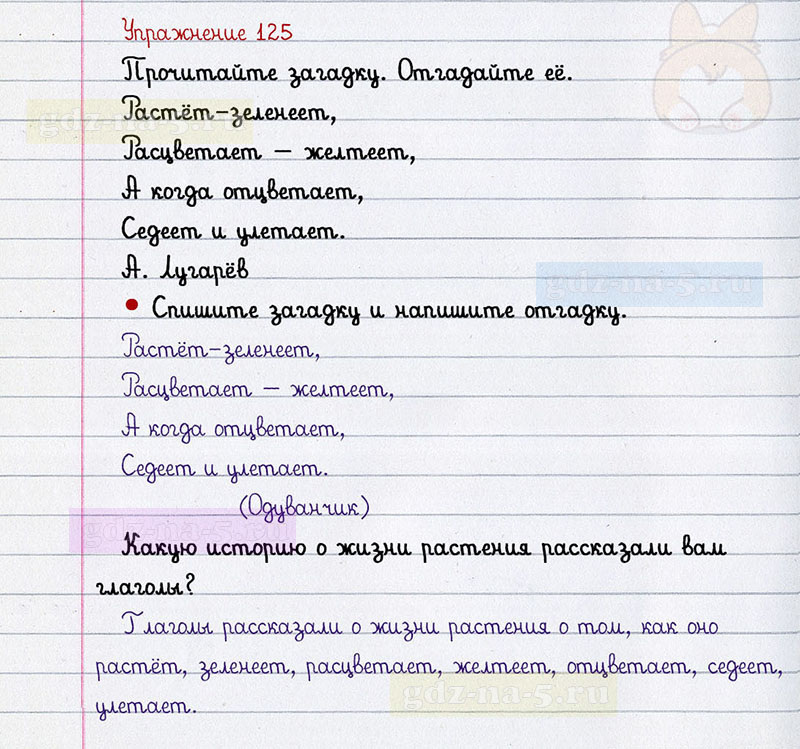 Упражнение 125
Прочитайте загадку. Отгадайте её.
Растёт-зеленеет,
gdz-na-5.ru
Расцветает – желтеет,
А когда отцветает,
Седеет и улетает.
А. Лугарёв
gdz-na-5.ru
• Спишите загадку и напишите отгадку.
Растёт-зеленеет,
Расцветает – желтеет,
А когда отцветает,
Седеет и улетает.
(Одуванчик)
gdz-na-5.ru
Какую историю о жизни растения рассказали вам
глаголы?
Глаголы рассказали о жизни растения о том, как оно
растёт, зеленеет, расцветает, желтеет, отцветает, седеет,
улетает.
gdz-na-5.ru